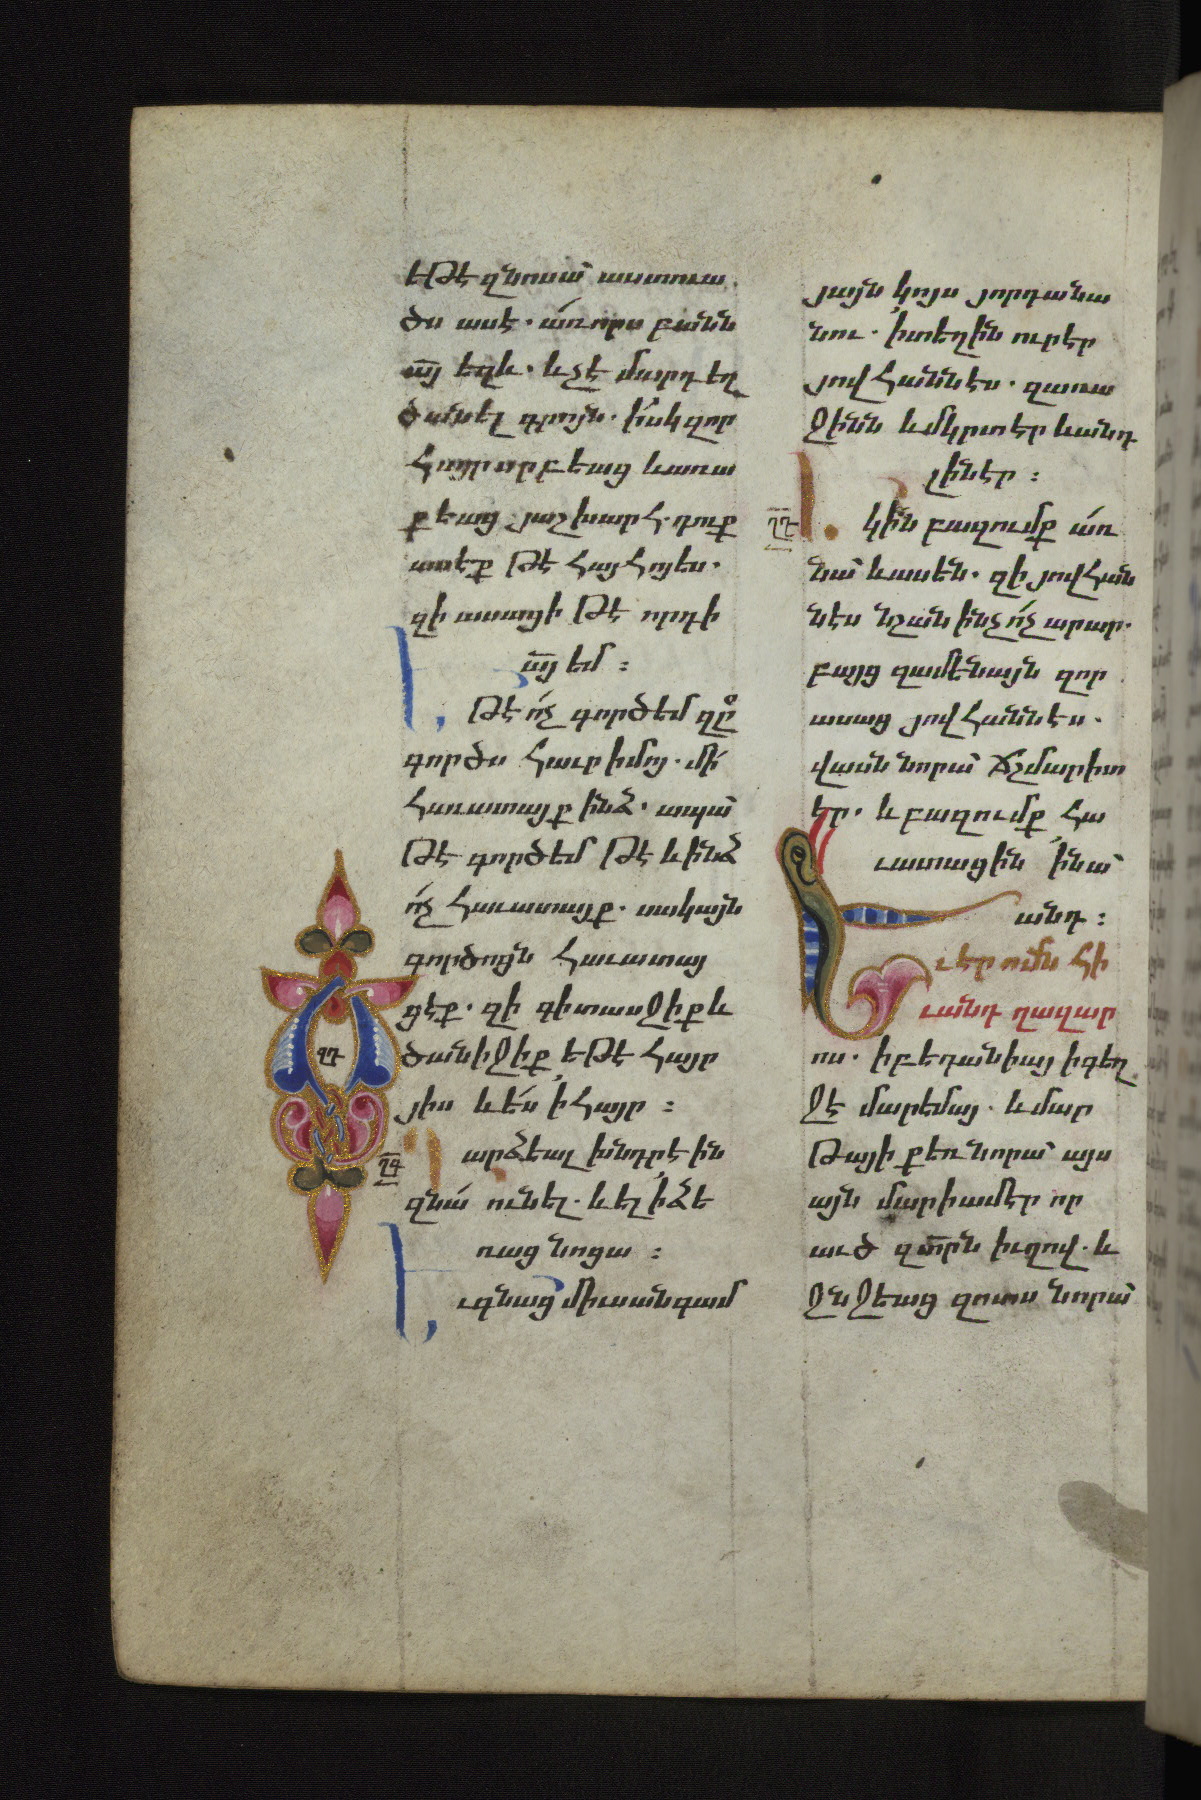 եթէ զնոսա՝ աստուա
ծս ասէ. առ որս բանն
ա՟յ եղև. և չէ մարդ եղ
ծանել գրոյն. իսկ զոր
հայր սրբեաց և առա
քեաց յաշխարհ. դուք
ասէք թէ հայհոյես.
զի ասացի թէ որդի
ա՟յ եմ :
Եթէ ո՛չ գործեմ զը
գործս հաւր իմոյ. մի՛
հաւատայք ինձ. ապա՝
թէ գործեմ թէ և ինձ
ո՛չ հաւատայք. սակայն
գործոցն հաւատայ
ցէք. զի գիտասջիք և
ծանիջիք եթէ հայր
յիս և ես ի հայր :
ղգ Դարձեալ խնդրէին
զնա՛ ունել. և ել ի ձե
ռաց նոցա :
Եւ գնաց միւսանգամ
ղդ
յայն կոյս յորդանա
նու. ի տեղին ուր էր
յովհաննէս. զառա
ջինն և մկրտէր և անդ
լինէր :
ղդ Եկին բազումք առ
նա՝ և ասեն. զի յովհան
նէս նշան ինչ ո՛չ արար.
բայց զամենայն զոր
ասաց յովհաննէս.
վասն նորա՝ ճշմարիտ
էր. և բազումք հա
ւատացին ի նա՝
անդ :
Եւ էր ոմն հի
ւանդ ղազար
ոս. ի բեդանիայ ի գեղ
ջէ մարեմայ. և մար
թայի քեռ նորա՝ այս
այն մարիամ էր որ
աւծ զտ՟րն իւղով. և
ջնջեաց զոտս նորա՝